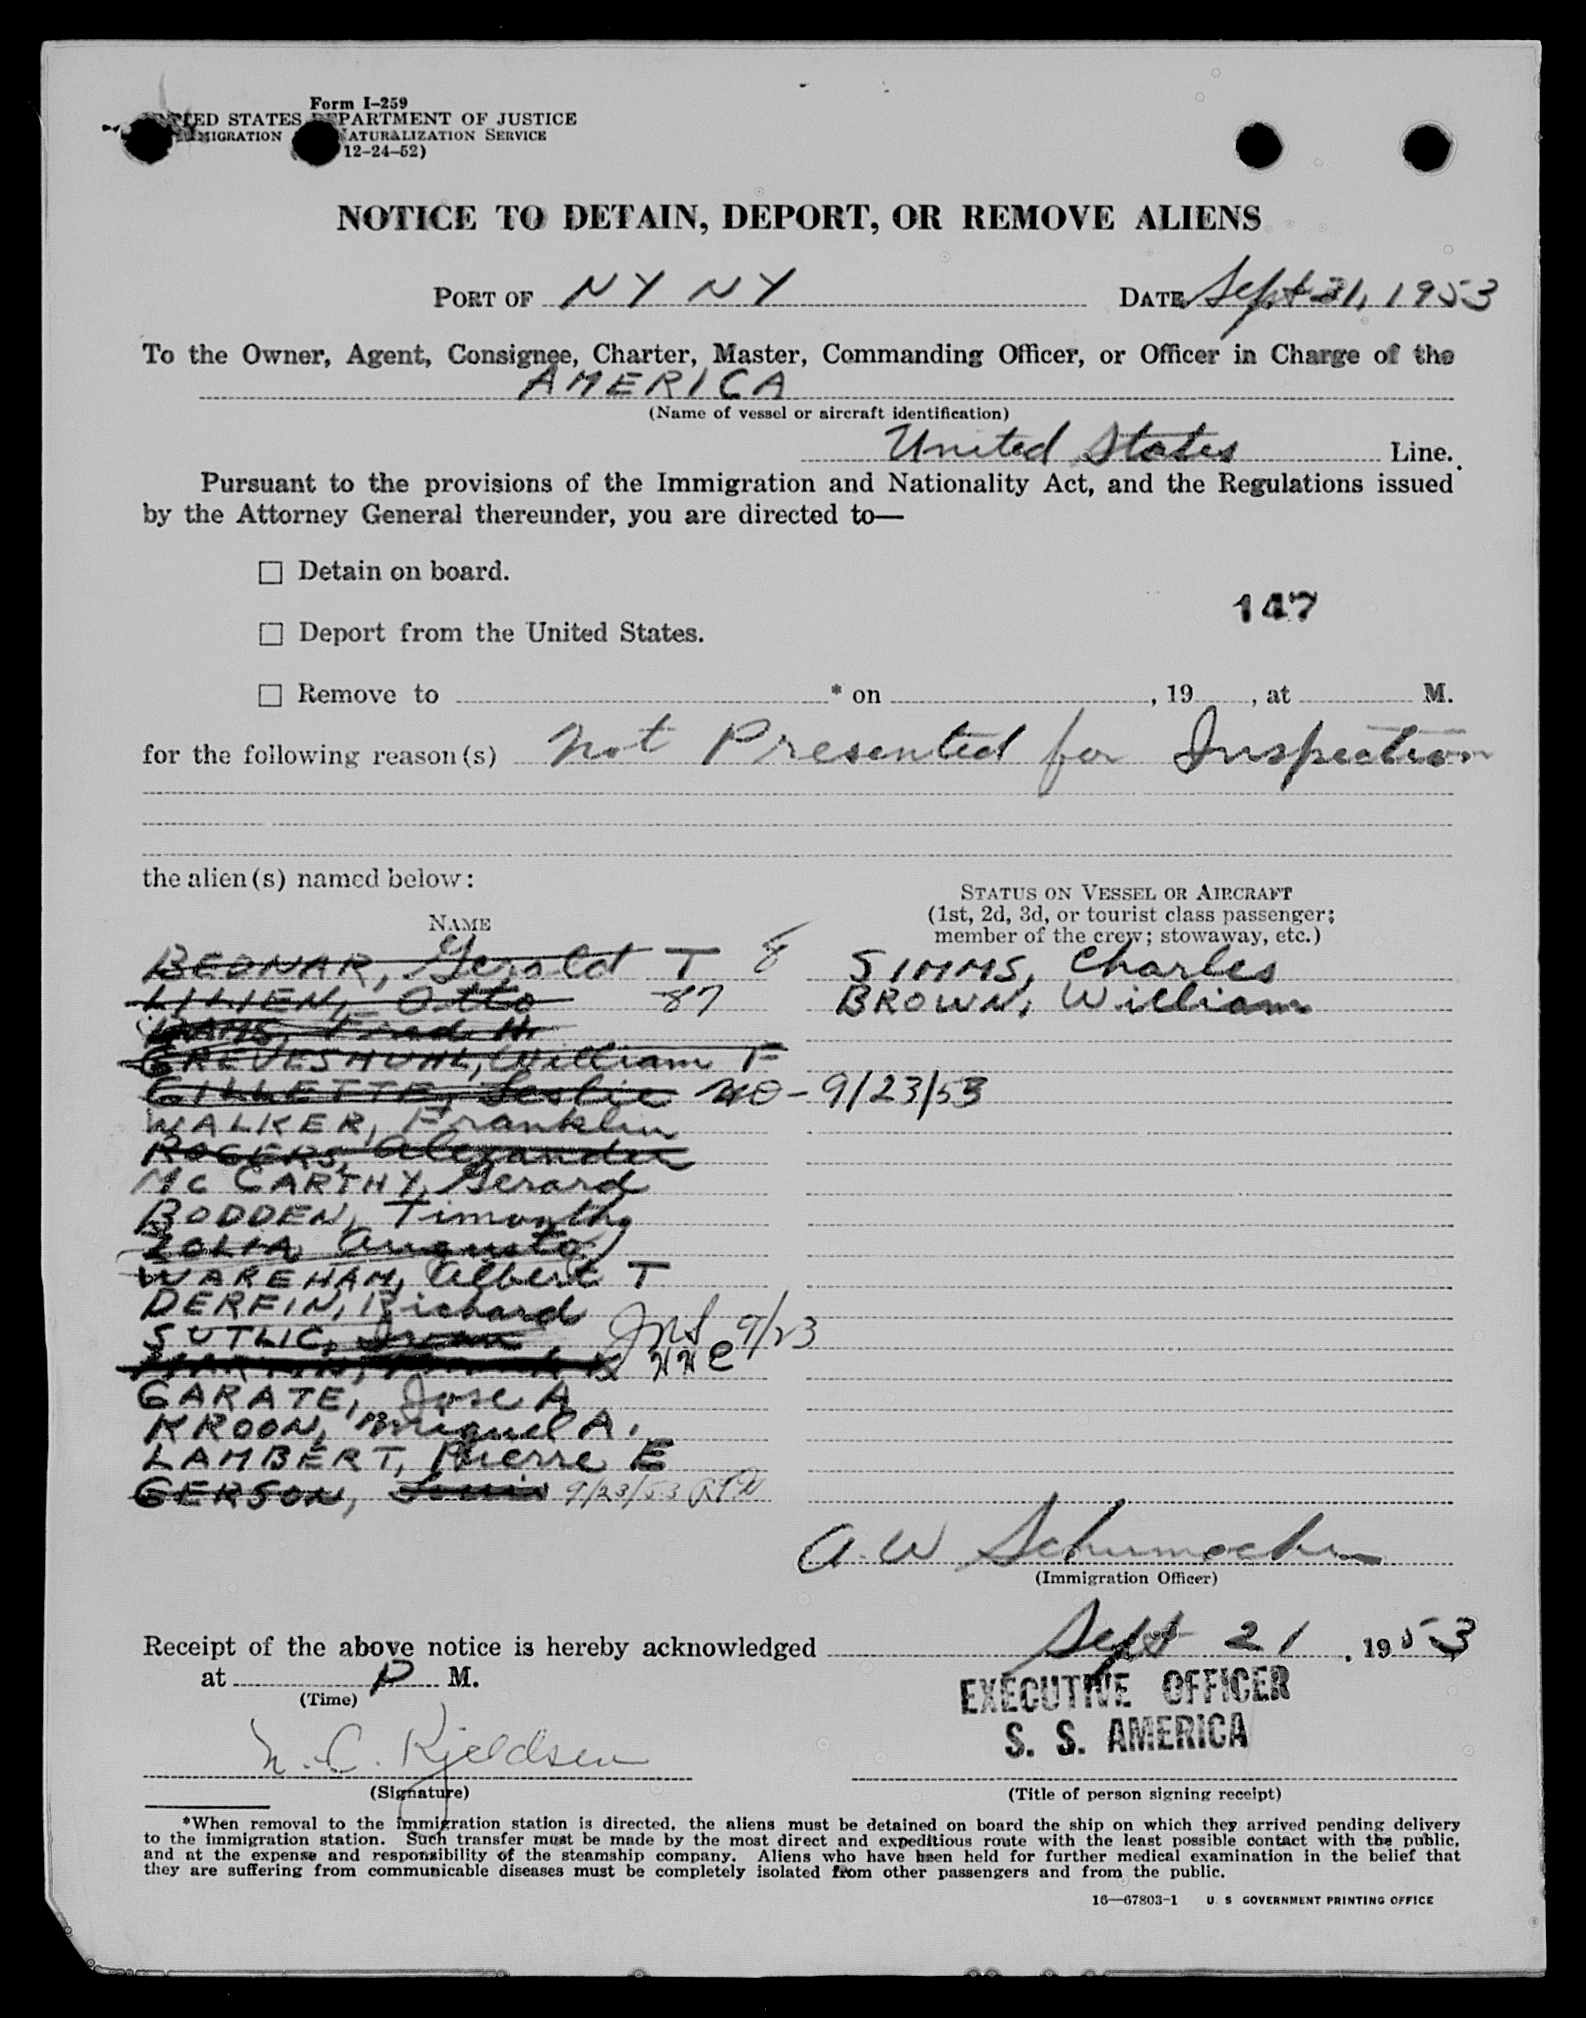 Form I-259
UNITED STATES DEPARTMENT OF JUSTICE
IMMIGRATION NATURALIZATION SERVICE
12-24-52)
NOTICE TO DETAIN, DEPORT, OR REMOVE ALIENS
PORT OF NY NY DATE Sept 21, 1953
To the Owner, Agent, Consignee, Charter, Master, Commanding Officer, or Officer in Charge of the
AMERICA
(Name of vessel or aircraft identification)
United States Line.
Pursuant to the provisions of the Immigration and Nationality Act, and the Regulations issued
by the Attorney General thereunder, you are directed to—
☐ Detain on board.
147
☐ Deport from the United States.
☐ Remove to * on , 19 , at M.
for the following reason(s) Not Presented for Inspection
the alien(s) named below:
STATUS ON VESSEL OR AIRCRAFT
NAME (1st, 2d, 3d, or tourist class passenger;
member of the crew; stowaway, etc.)
BEDNAR, Gerald T 8 SIMMS, Charles
LILIEN, Otto 87 BROWN, William
Fred H.
GREVESMUHL, William F
GILLETTE, Leslie 9/23/53
WALKER, Franklin
ROGERS, Alexander
McCARTHY, Gerard
BODDEN, Timonthy
ZOLIA, Augusto
WAREHAM, Albert T
DERFIN, Richard
SUTLIC, Ivan 9/23
MARTIN,
GARATE, Jose A
KROON, Miguel A.
LAMBERT, Pierre E
GERSON, Louis 9/23/53
A. W Schumacher
(Immigration Officer)
Receipt of the above notice is hereby acknowledged Sept 21, 1953
at P M.
(Time)
EXECUTIVE OFFICER
S. S. AMERICA
N. C. Kjeldsen
(Signature) (Title of person signing receipt)
*When removal to the immigration station is directed, the aliens must be detained on board the ship on which they arrived pending delivery
to the immigration station. Such transfer must be made by the most direct and expeditious route with the least possible contact with the public,
and at the expense and responsibility of the steamship company. Aliens who have been held for further medical examination in the belief that
they are suffering from communicable diseases must be completely isolated from other passengers and from the public.
16—67803-1 U. S GOVERNMENT PRINTING OFFICE